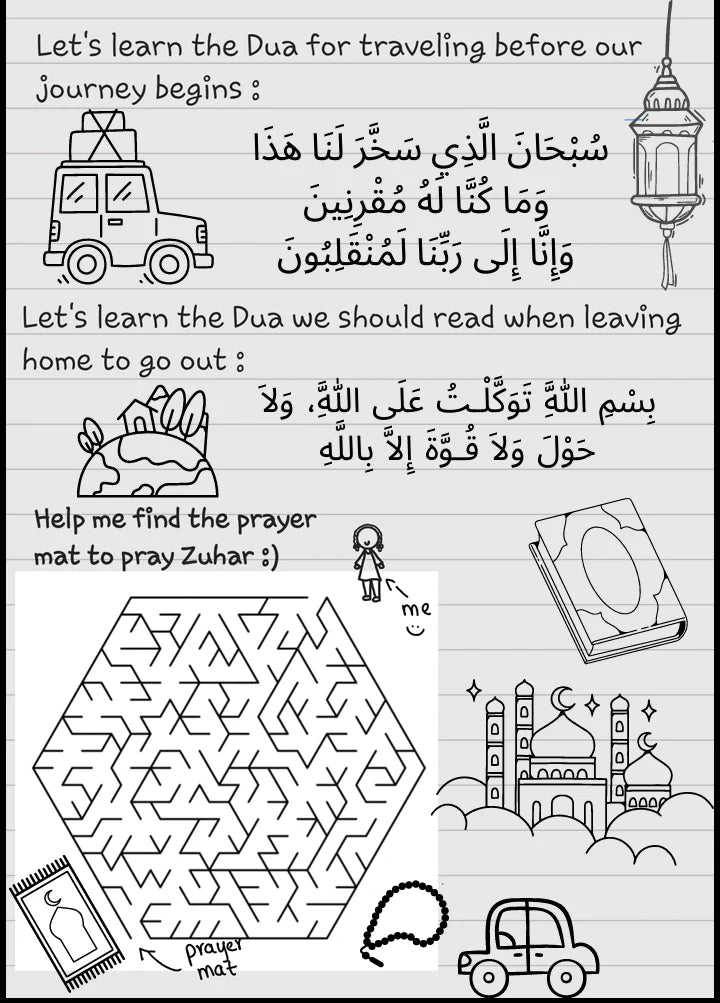 Let's learn the Dua for traveling before our
journey begins :
سُبْحَانَ الَّذِي سَخَّرَ لَنَا هَذَا
وَمَا كُنَّا لَهُ مُقْرِنِينَ
وَإِنَّا إِلَى رَبِّنَا لَمُنْقَلِبُونَ
Let's learn the Dua we should read when leaving
home to go out :
بِسْمِ اللهِ تَوَكَّلْـتُ عَلَى اللهِ، وَلاَ
حَوْلَ وَلاَ قُـوَّةَ إِلاَّ بِاللَّهِ
Help me find the prayer
mat to pray Zuhar :)
me
prayer
mat